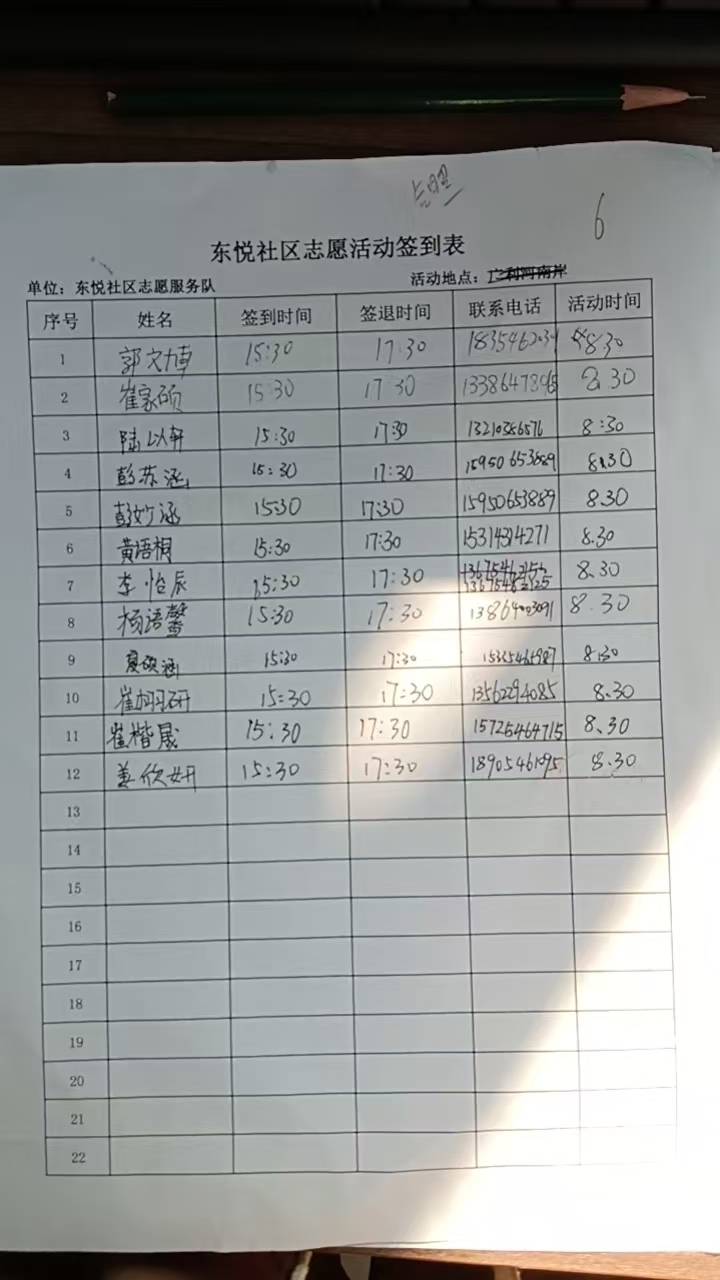 6
东悦社区志愿活动签到表
单位：东悦社区志愿服务队 活动地点：广利河南岸
序号 姓名 签到时间 签退时间 联系电话 活动时间
1 郭文博 15:30 17:30 8.30
2 崔家硕 15:30 17:30 8.30
3 陆以轩 15:30 17:30 13210386576 8:30
4 彭苏涵 15:30 17:30 15950653889 8.30
5 彭妙涵 15:30 17:30 15950653889 8.30
6 黄语桐 15:30 17:30 15314314271 8.30
7 李怡辰 15:30 17:30 8.30
8 杨语馨 15:30 17:30 8.30
9 15:30 17:30 8:30
10 15:30 17:30 13562294085 8.30
11 崔楷晟 15:30 17:30 15725464715 8.30
12 姜欣妍 15:30 17:30 18905461095 8.30
13
14
15
16
17
18
19
20
21
22